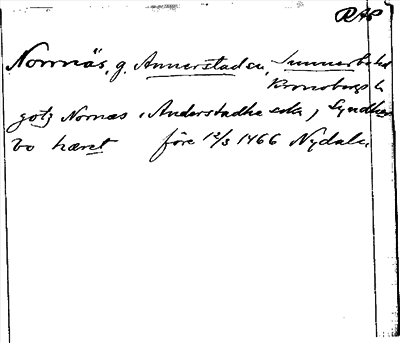 RAP
Norrnäs, g. Annerstad sn, Sunnerbo hd
Kronobergs l.
gotz Nornæs i Anderstadhe sokn, Syndher
bo hæret före 12/3 1466 Nydala